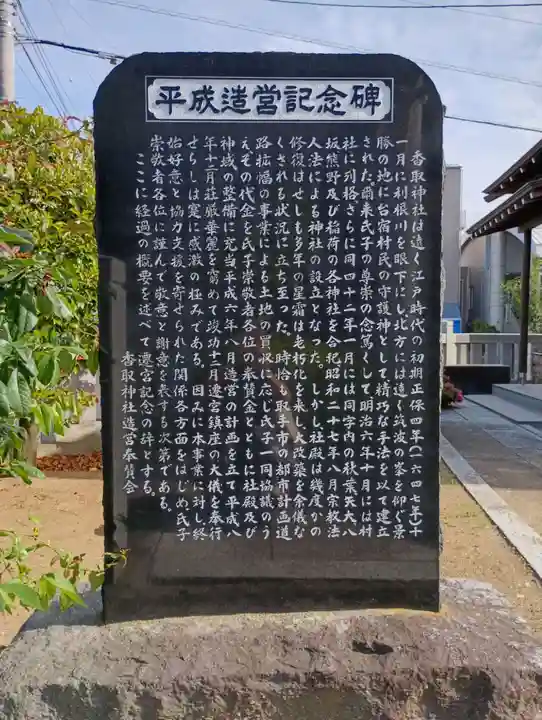 平成造営記念碑
香取神社は遠く江戸時代の初期正保四年(一六四七年)十
一月に利根川を眼下にし北方には遠く筑波の峯を仰ぐ景
勝の地に台宿村民の守護神として精巧な手法を以て建立
された爾来氏子の尊崇の念篤くして明治六年十月には村
社に列格さらに同四十二年一月には同字内の秋葉天大八
坂熊野及び稲荷の各神社を合祀昭和二十七年八月宗教法
人法による神社の設立となった。しかし社殿は幾度かの
修復はせしも多年の星霜は老朽化を来し大改築を余儀な
くされる状況に立ち至った。時恰も取手市の都市計画道
路拡幅の事業による土地の買収に応じ氏子一同協議のう
えその代金を氏子崇敬者各位の奉賛金とともに社殿及び
神域の整備に充当平成六年八月造営の計画を立て平成八
年十二月荘厳華麗を窮めて竣功十二月遷宮鎮座の大儀を奉行
せらしは寔に感激の極みである。因みに本事業に対し終
始好意と協力支援を寄せられた関係各方面をはじめ氏子
崇敬者各位に謹んで敬意と謝意を表する次第である。
ここに経過の概要を述べて遷宮記念の碑とする。
香取神社造営奉賛会